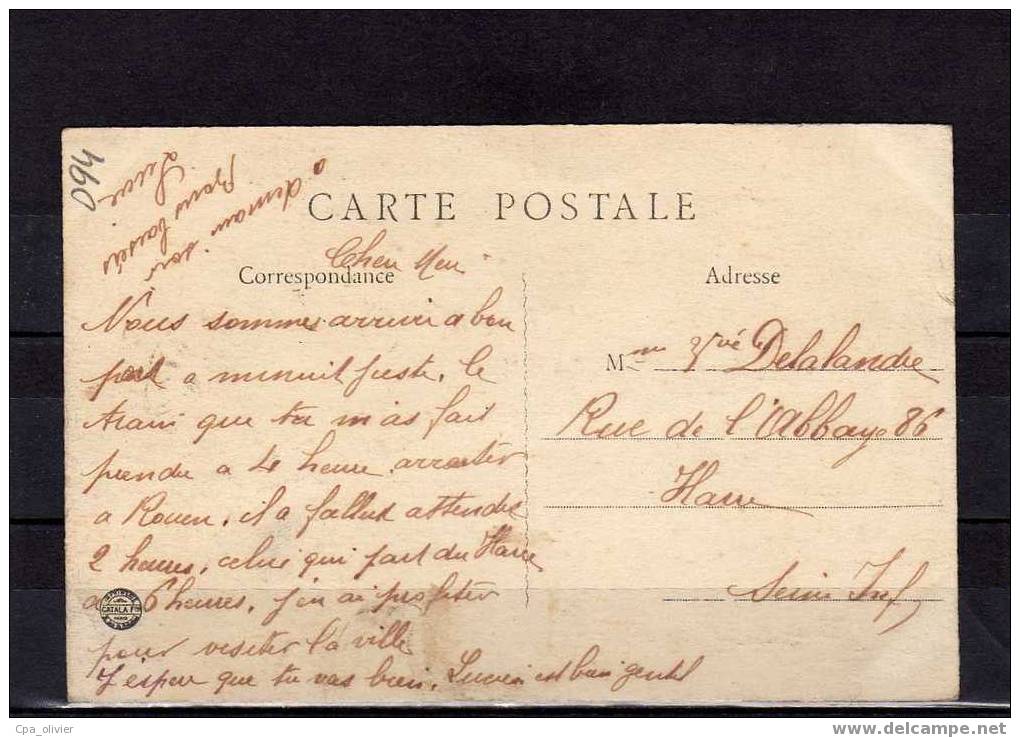 094
a demain soir
Bons baisers
CARTE POSTALE
Correspondance
Adresse
Nous sommes arrivé a bon
port a minuit juste, le
train que tu m'as fait
prendre a 4 heure arreter
a Rouen, il a fallut attendre
2 heures, celui qui part du Havre
a 6 heures, j'en ai profiter
pour visiter la ville
J'espere que tu vas bien, Lucien est bien gentil
Mme Vve Delalandre
Rue de l'Abbaye 86
Havre
Seine Inf
CATALA Fres
PARIS
Cpa_olivier
www.delcampe.net